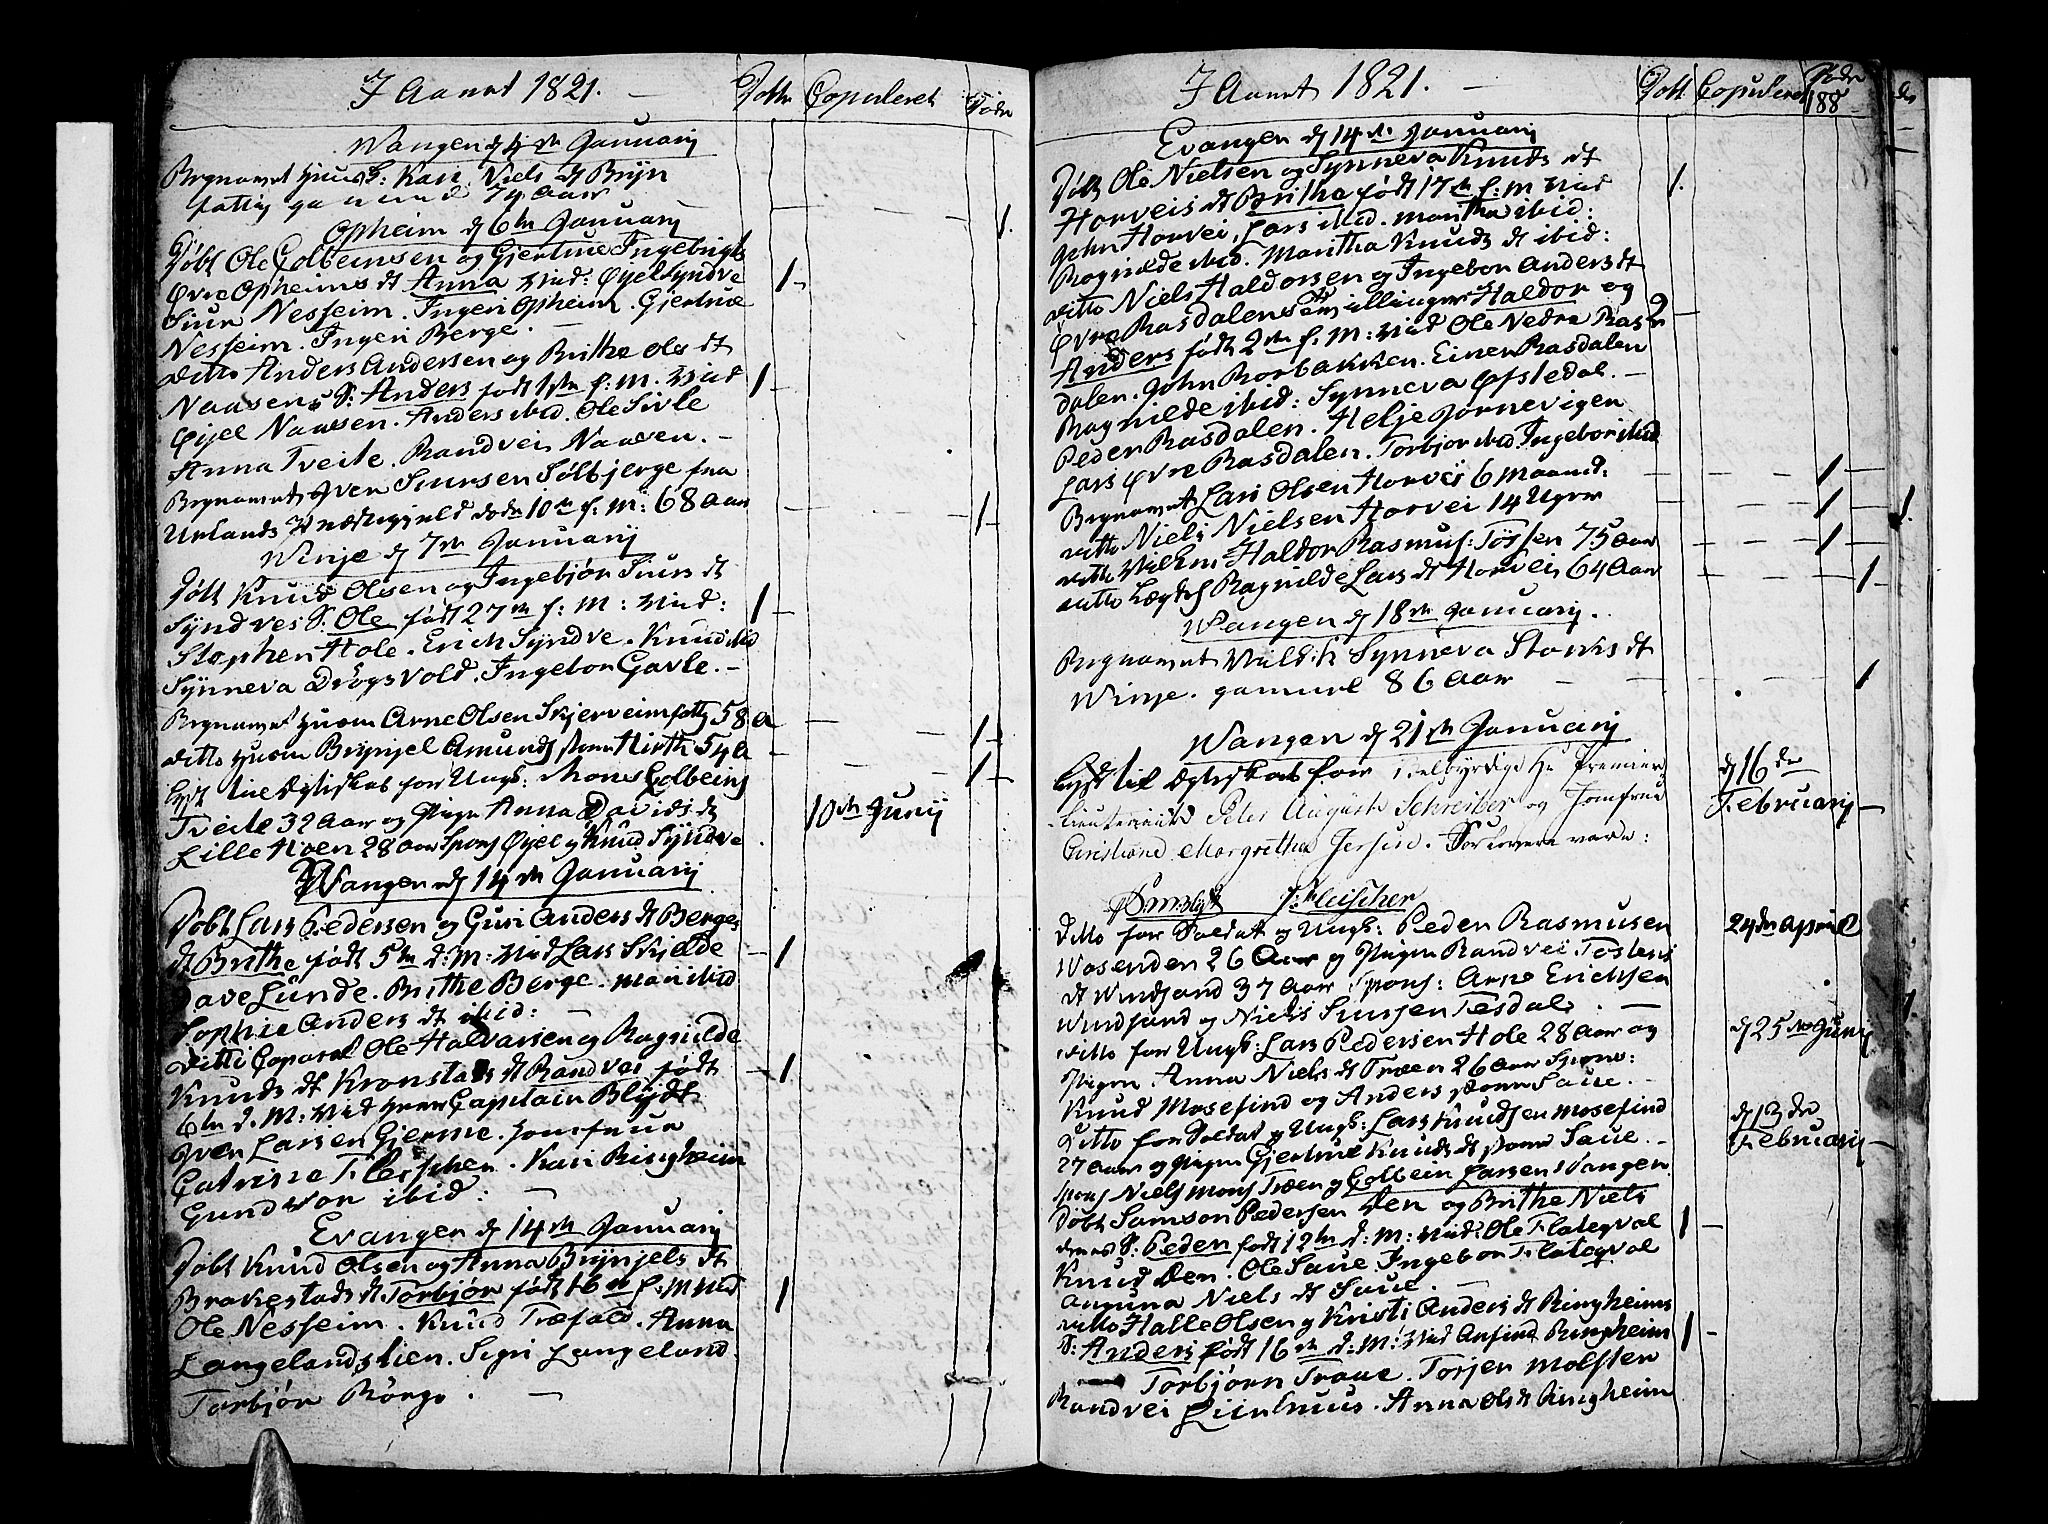 I Aaret 1821. Døbte Copuleret Døde
Wangen d 4de Januarij
Begravet Huus S: Kari Niels dt Bryn
fattig gammel 74 Aar
Opheim d 6te Januarij 1.
Døbt Ole Colbeinsen og Gjertrue Ingebrigts
Øvre Opheims dt Anna Vid: Øyel Syndve 1
Siur Nesheim. Ingeri Opheim. Gjertrue
Nesheim. Ingeri Berge.
ditto Anders Andersen og Brithe Ols dt
Naasens S: Anders født 1ste f: M. Vid 1
Øyel Naasen. Anders ibid. Ole Sivle
Anna Tveite. Randvei Naasen.
Begravet Iver Siursen Sølbjerge fra
Urlands Præstegjeld døde 10de f: M: 68 Aar 1
Winje d 7de Januarij
Døbt Knud Olsen og Ingebjør Siurs dt
Syndves S. Ole født 27de f: M: Vid: 1
Stephen Hole. Erich Syndve. Knud ibid
Synneva Drögsvold. Ingebor Gavle.
Begravet Huusm Arne Olsen Skjerveim fattig 58 A 1
ditto Huusm Brynjel Amunds Hirth 54 A 1
Lyst til Ægteskab for Ungk: Mons Colbeins
Tveite 32 Aar og Pigen Anna Davids dt 10de Junij
Lille Hoen 28 Aar Spons Øyel og Knud Syndve
Wangen d 14de Januarij
Døbt Lars Pedersen og Guri Anders dt Berges
dt Brithe født 5te d: M: Vid Lars Skjelde 1
Dave Lunde. Brithe Berge. Mari ibid
Sophie Anders dt ibid:
ditto Coporal Ole Halvarsen og Ragnilde
Knuds dt Kronstads dt Randvei født 1
6te d. M: Vid Herr Capitain Blydt
Iver Larsen Gjerme. Jomfrue
Catrine Fleischer. Kari Ringheim
Gundvor ibid:
Evangen d 14de Januarij
Døbt Knud Olsen og Anna Brynjels dt
Brakestads dt Torbjør født 16de f: M Vid 1
Ole Nesheim. Knud Træfald. Anna
Langelandslien. Sigri Langeland
Torbjør Rönge.
I Aaret 1821. Døbt Copuleret Døde
188
Evangen d 14de Januarij
Døbt Ole Nielsen og Synneva Knuds dt
Horveis dt Brithe født 17de f: M Vid 1.
John Horvei, Lars ibid. Maritha ibid:
Ragnilde ibid. Maritha Knuds dt ibid:
ditto Niels Haldorsen og Ingebor Anders dt
Øvre Rasdalens Tvillinger Haldor og
Anders født 2den f: M: Vid Ole Nedre Ras 2
dalen. John Borbakken. Einer Rasdalen
Ragnilde ibid: Synneva Øfstedal.
Peder Rasdalen. Helje Jørnevigen
Lars Øvre Rasdalen. Torbjør ibid. Ingebor ibid
Begravet Lars Olsen Horvei 6 Maand: 1
ditto Niels Nielsen Horvei 14 Uger 1
ditto Haldor Rasmus: Tössen 75 Aar 1
ditto Lægds Ragnilde Lars dt Horvei 64 Aar 1
Wangen d 18de Januarij.
Begravet Synneva dt
Winje. gammel 86 Aar 1
Wangen d 21de Januarij
Lyst til Ægteskab for Velbyrdige Hr Premier d 16de
Lieutenant Peter August Schreiber og Jomfrue Februarij
Christiane Margrethe Jersin. Forlovere vare:
Fleischer
ditto for Soldat og Ungk: Peder Rasmusen 24de April
Wosenden 26 Aar og Pigen Randvei Tostens
dt Windsand 37 Aar Spons: Arne Erichsen
Windsand og Niels Siursen Tesdal.
ditto for Ungk: Lars Pedersen Hole 28 Aar og d 25de Junij
Pigen Anna Niels dt Træen 26 Aar Spons:
Knud Mosefind og Anders Saue.
ditto for Soldat og Ungk: Lars Knudsen Mosefind d 13de
27 Aar og Pigen Gjertrue Knuds dt Saue. Februarij
Spons Niels Mons Træen og Colbein Larsen Wangen.
Døbt Samson Pedersen Væn og Brithe Niels
S: Peder født 12te d: M: Vid: Ole Flateqval 1
Knud Væn. Ole Saue. Ingebor Flateqval
Anguna Niels dt Saue.
ditto Halle Olsen og Kristi Anders dt Ringheims
S: Anders født 16de d: M: Vid Anfind Ringheim 1
Torbjørn Traue. Torjer Molster
Randvei Anna Ols dt Ringheim